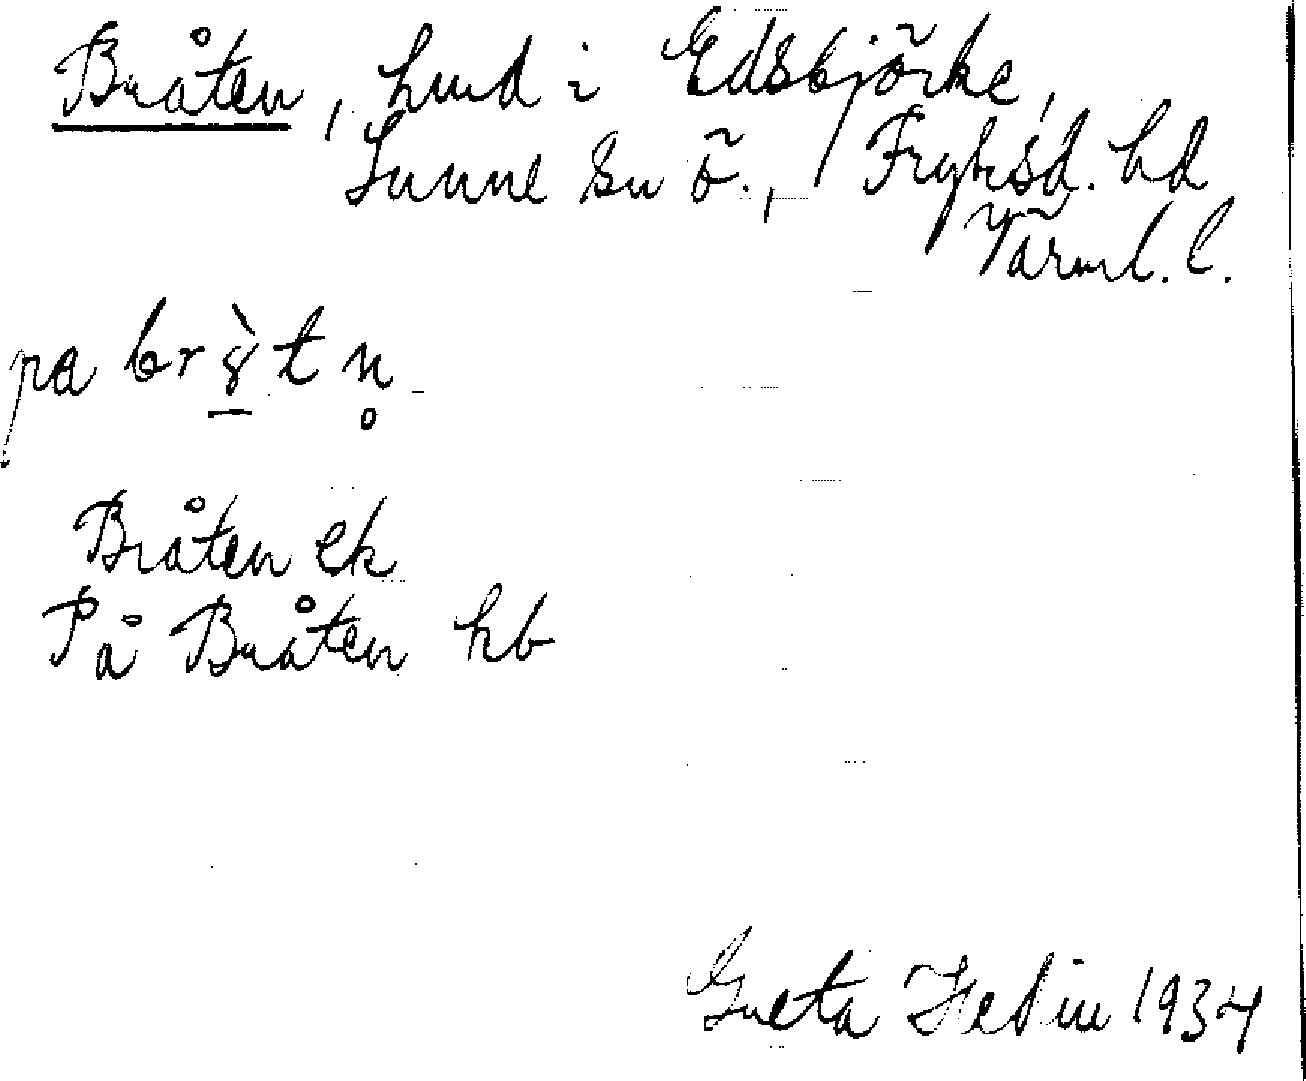 Bråten, hmd i Edsbjörke,
Sunne sn ö., Fryksd. hd
Värml. l.
pa br8̀tn̥
Bråten ek
På Bråten hb
Greta Hedin 1934